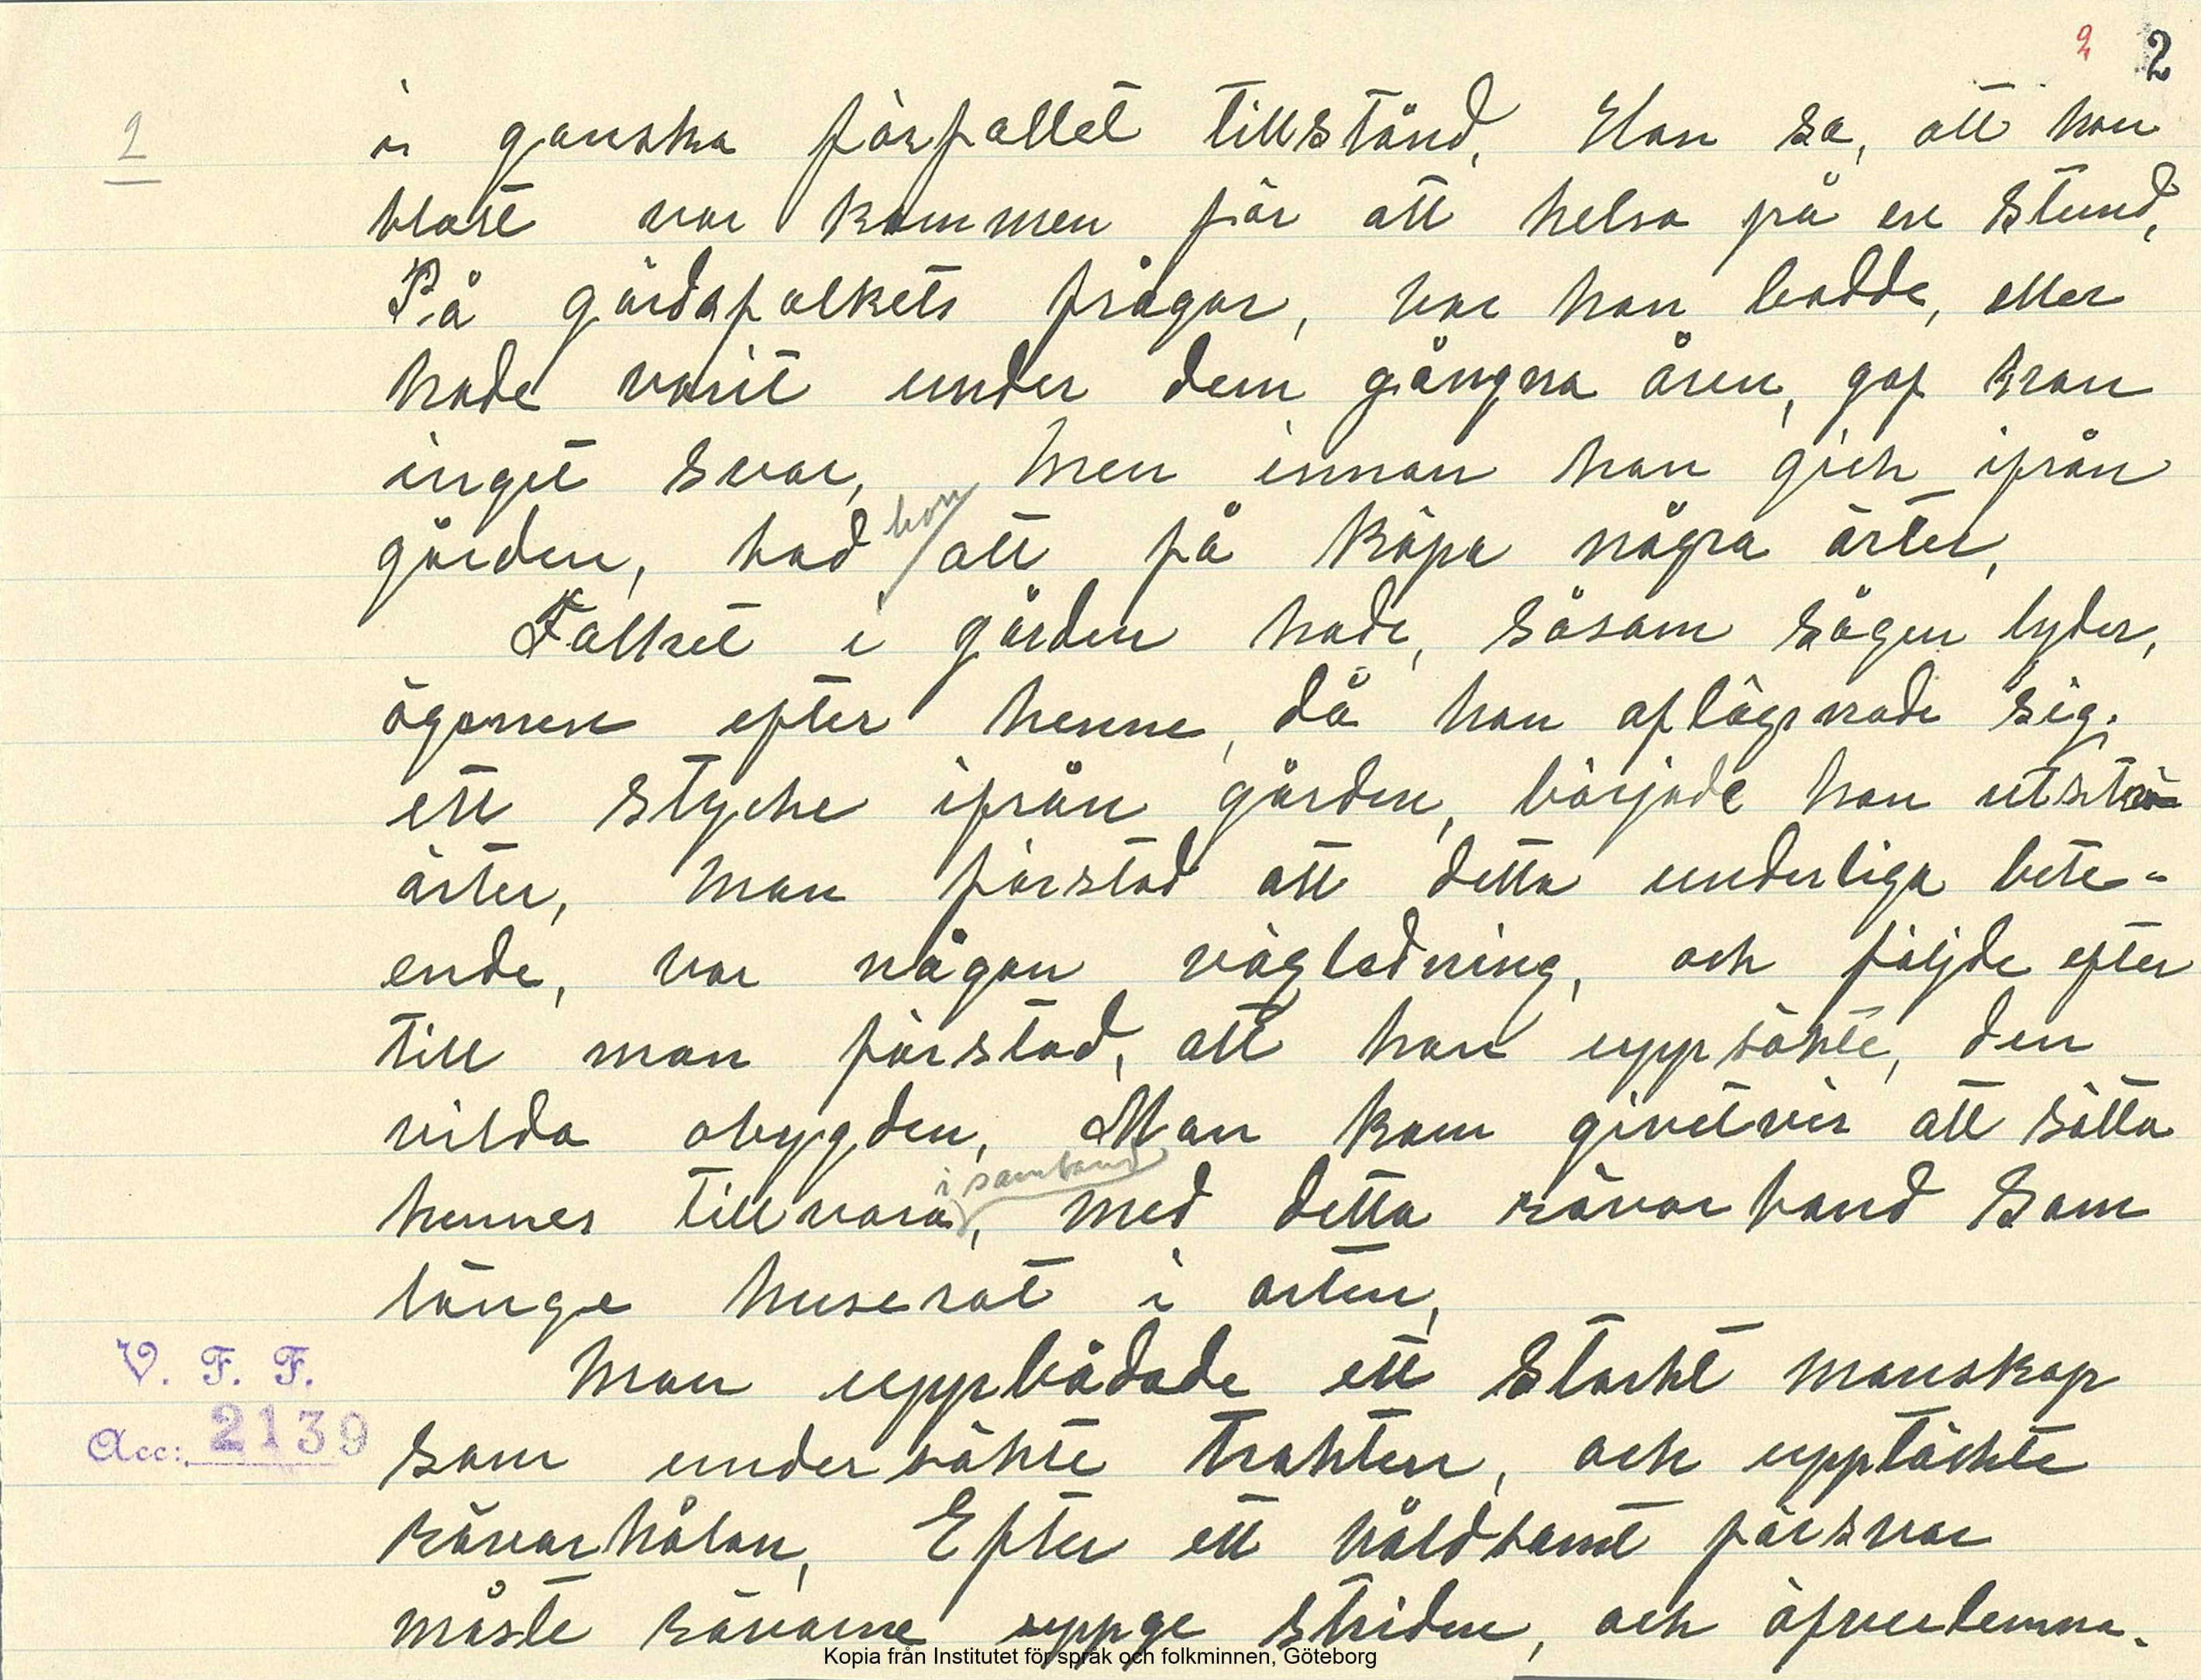 2 2
2
i ganska förfallet tillstånd, Hon sa, att hon
blott var kommen för att helsa på en stund,
På gårdsfolkets frågor, var hon bodde, eller
hade varit under dem gångna åren, gaf hon
inget svar, Men innan hon gick ifrån
gården, bad hon att få köpa några ärter,
Folket i gården hade, såsom sägen lyder,
ögonen efter henne, då hon aflägsnade sig,
ett stycke ifrån gården, började hon utströ
ärter, Man förstod att detta underliga bete-
ende, var någon vägledning, och följde efter
till man förstod, att hon uppsökte, den
vilda obygden, Man kom givetvis att sätta
hennes tillvara, i samband med detta rövarband Som
länge huserat i orten,
Man uppbådade ett starkt manskap
som undersökte trakten, och upptäckte
rövarhålan, Efter ett våldsamt försvar
måste rövarne uppge striden, och öfverlemna.
V. F. F.
Acc: 2139
Kopia från Institutet för språk och folkminnen, Göteborg